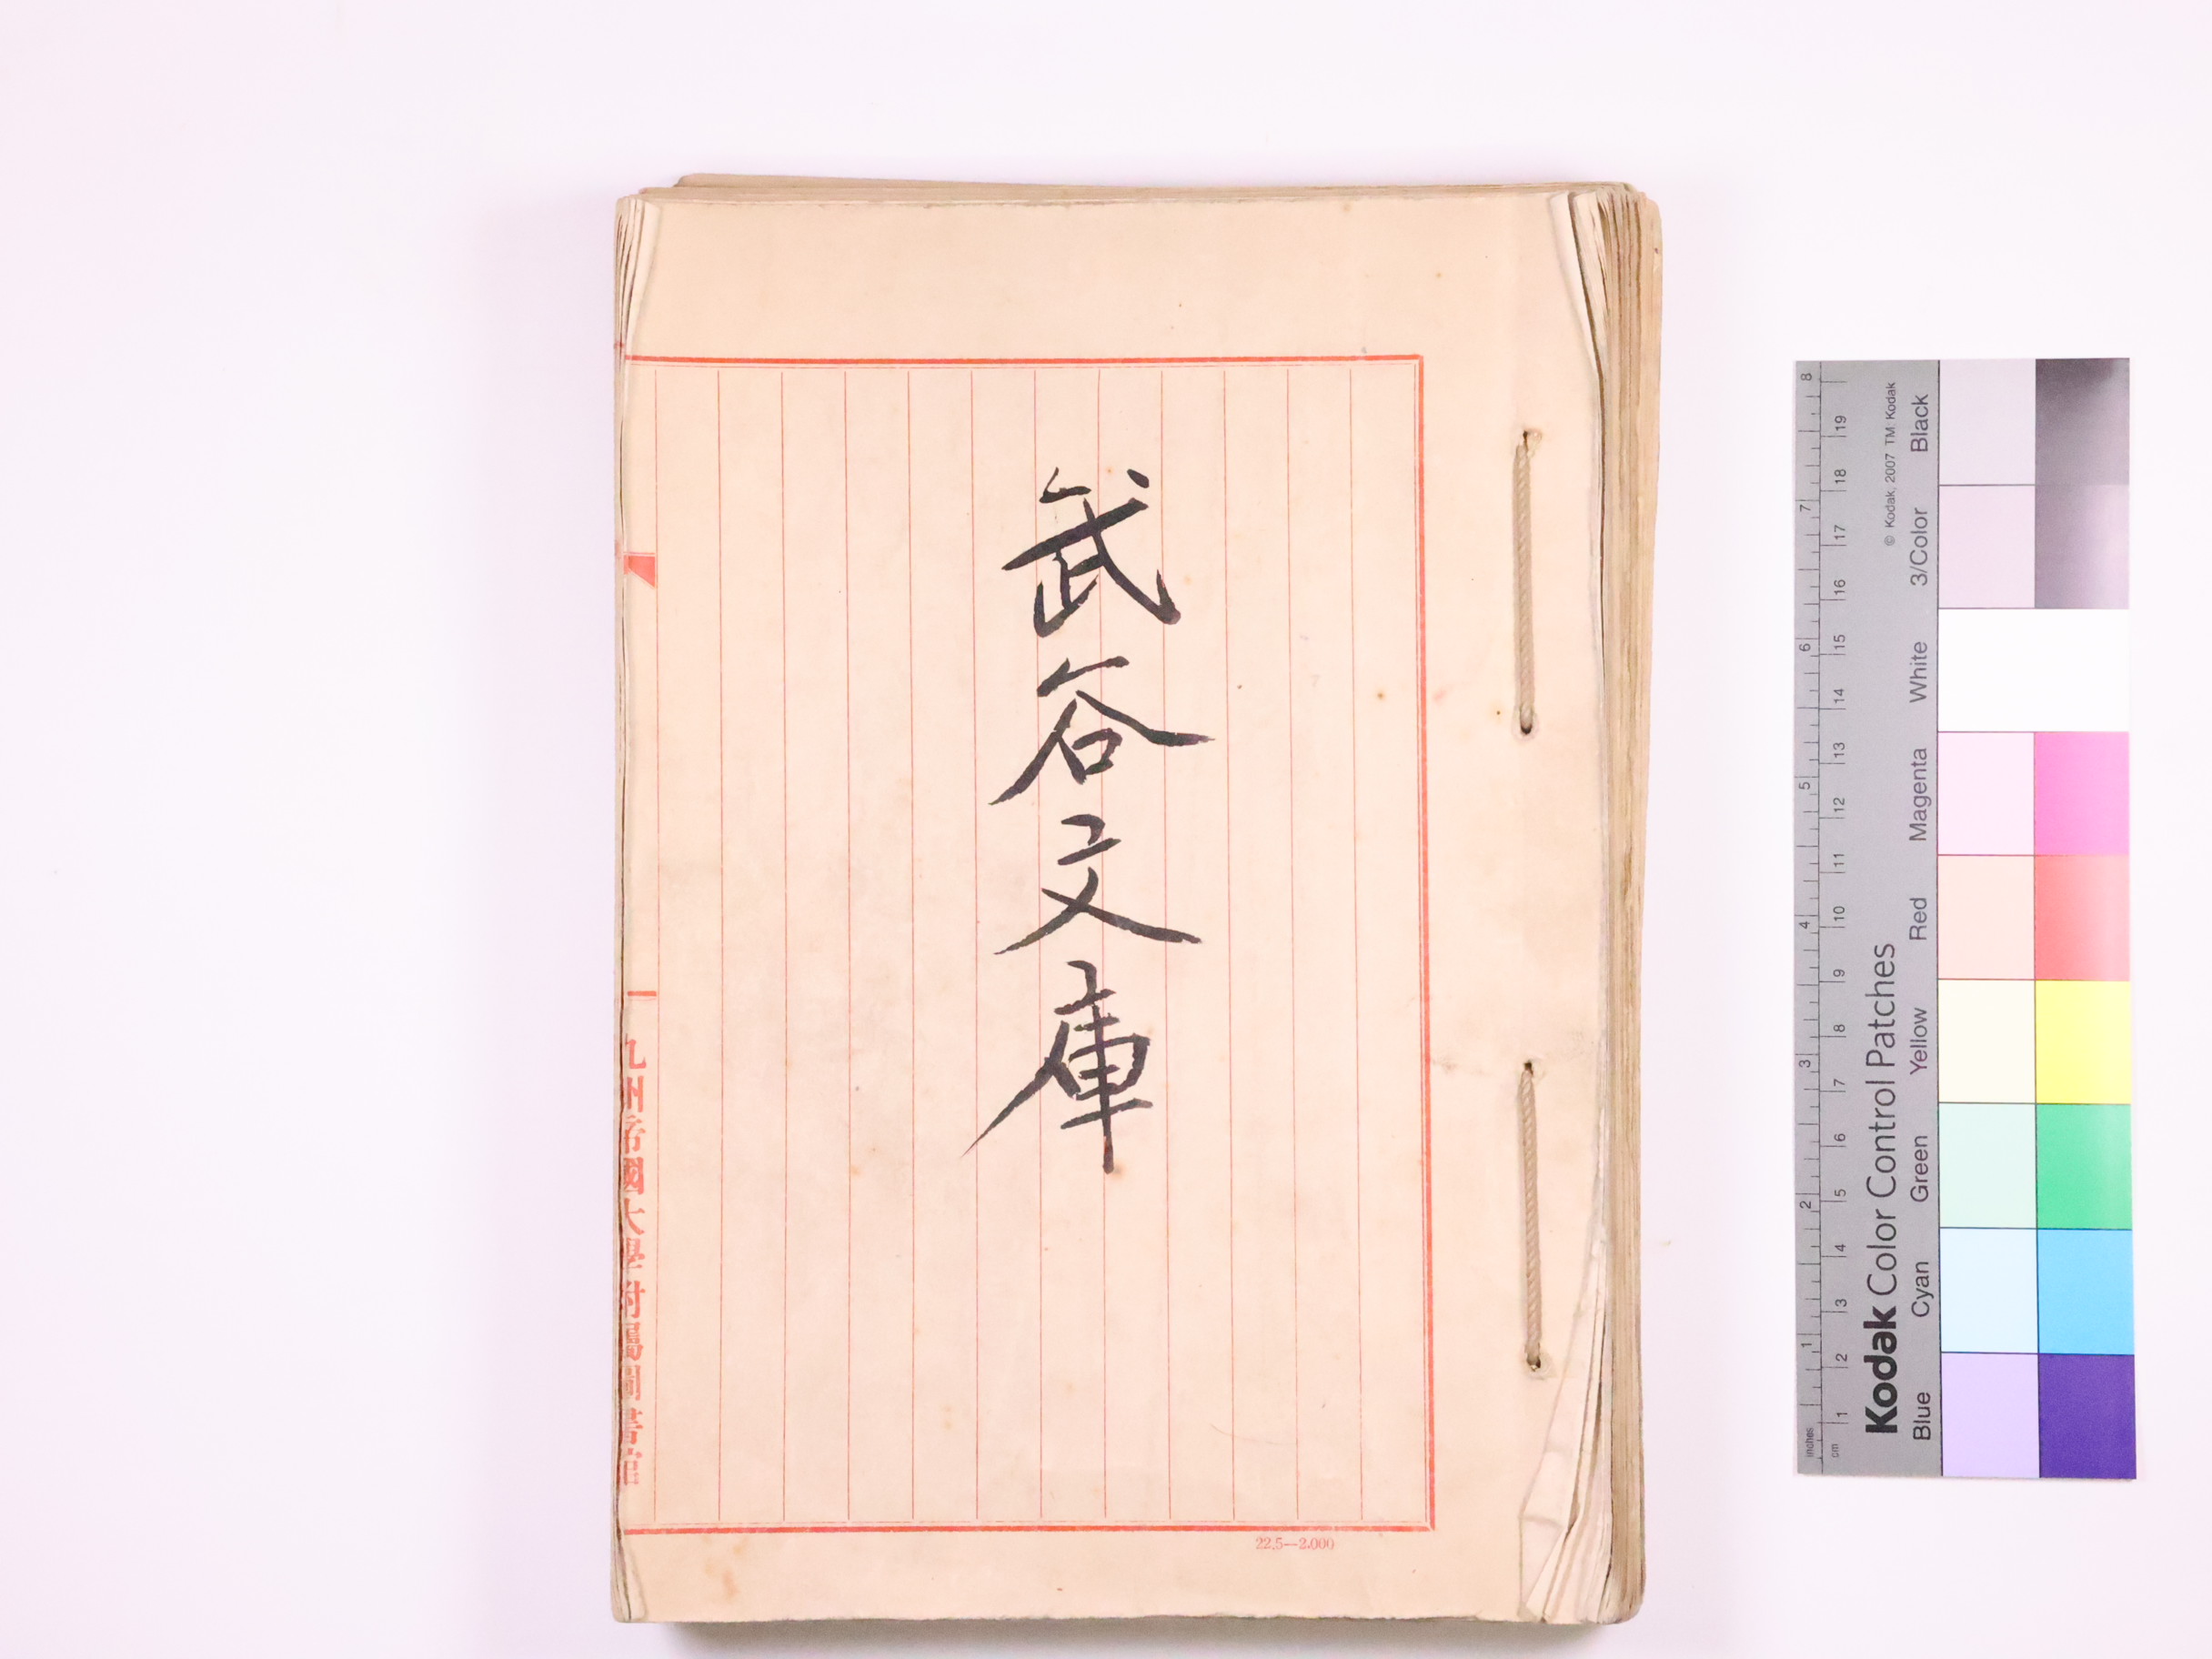 武谷文庫
九州帝國大學附屬圖書館
22.5—2.000
Kodak Color Control Patches
© Kodak, 2007 TM: Kodak
Blue Cyan Green Yellow Red Magenta White 3/Color Black
inches 1 2 3 4 5 6 7 8
cm 1 2 3 4 5 6 7 8 9 10 11 12 13 14 15 16 17 18 19